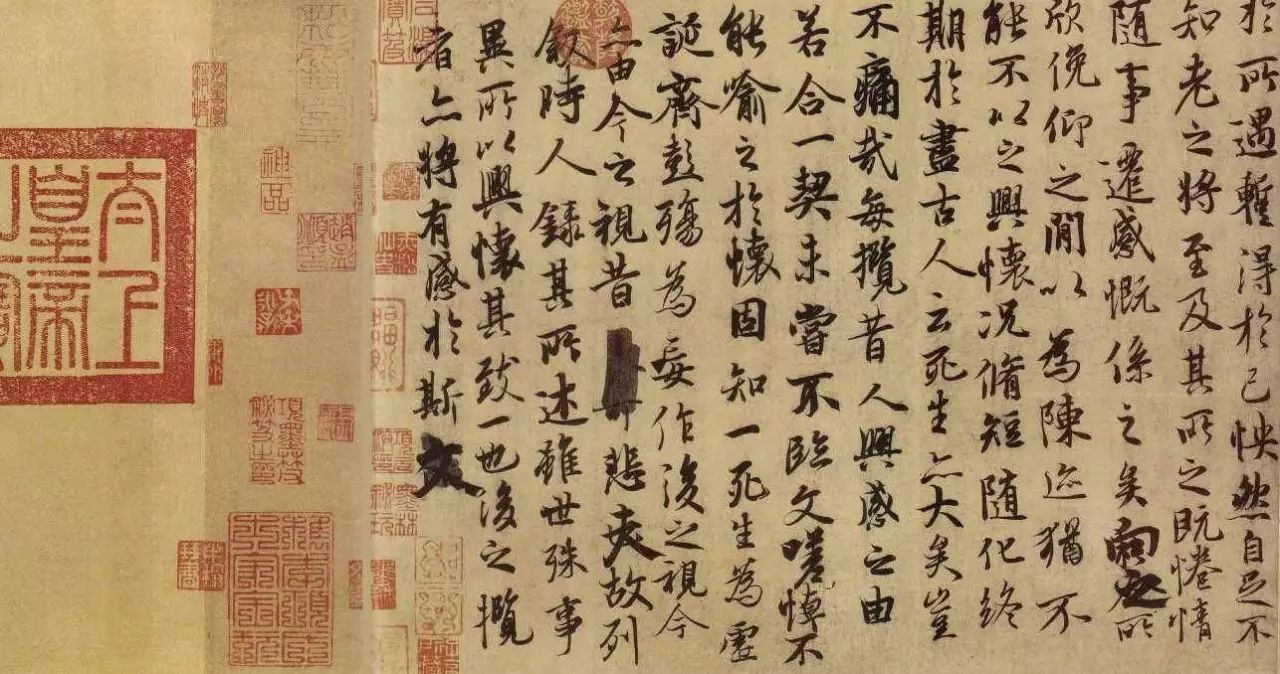 於所遇暫得於己怏然自足不
知老之將至及其所之既惓情
隨事遷感慨係之矣向之所
欣俛仰之閒以為陳迹猶不
能不以之興懷況脩短隨化終
期於盡古人云死生亦大矣豈
不痛哉每攬昔人興感之由
若合一契未嘗不臨文嗟悼不
能喻之於懷固知一死生為虛
誕齊彭殤為妄作後之視今
亦由今之視昔悲夫故列
叙時人錄其所述雖世殊事
異所以興懷其致一也後之攬
者亦將有感於斯文
神品
太上
皇帝